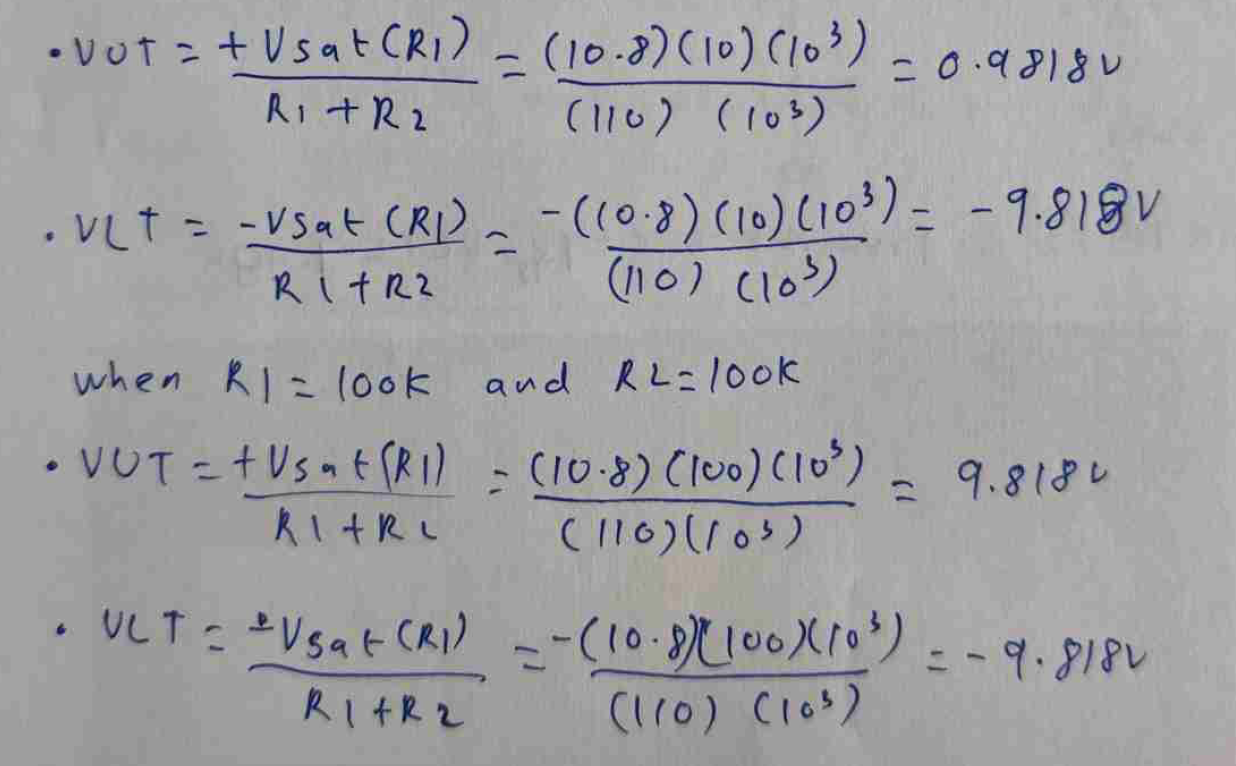 • VUT = +Vsat(R1) / R1 + R2 = (10.8)(10)(10³) / (110) (10³) = 0.9818V
• VLT = -Vsat (R1) / R1 + R2 = -(10.8)(10)(10³) / (110) (10³) = -9.818V
when R1 = 100K and R2 = 100K
• VUT = +Vsat(R1) / R1 + R2 = (10.8)(100)(10³) / (110)(10³) = 9.818V
• VLT = -Vsat(R1) / R1 + R2 = -(10.8)(100)(10³) / (110) (10³) = -9.818V